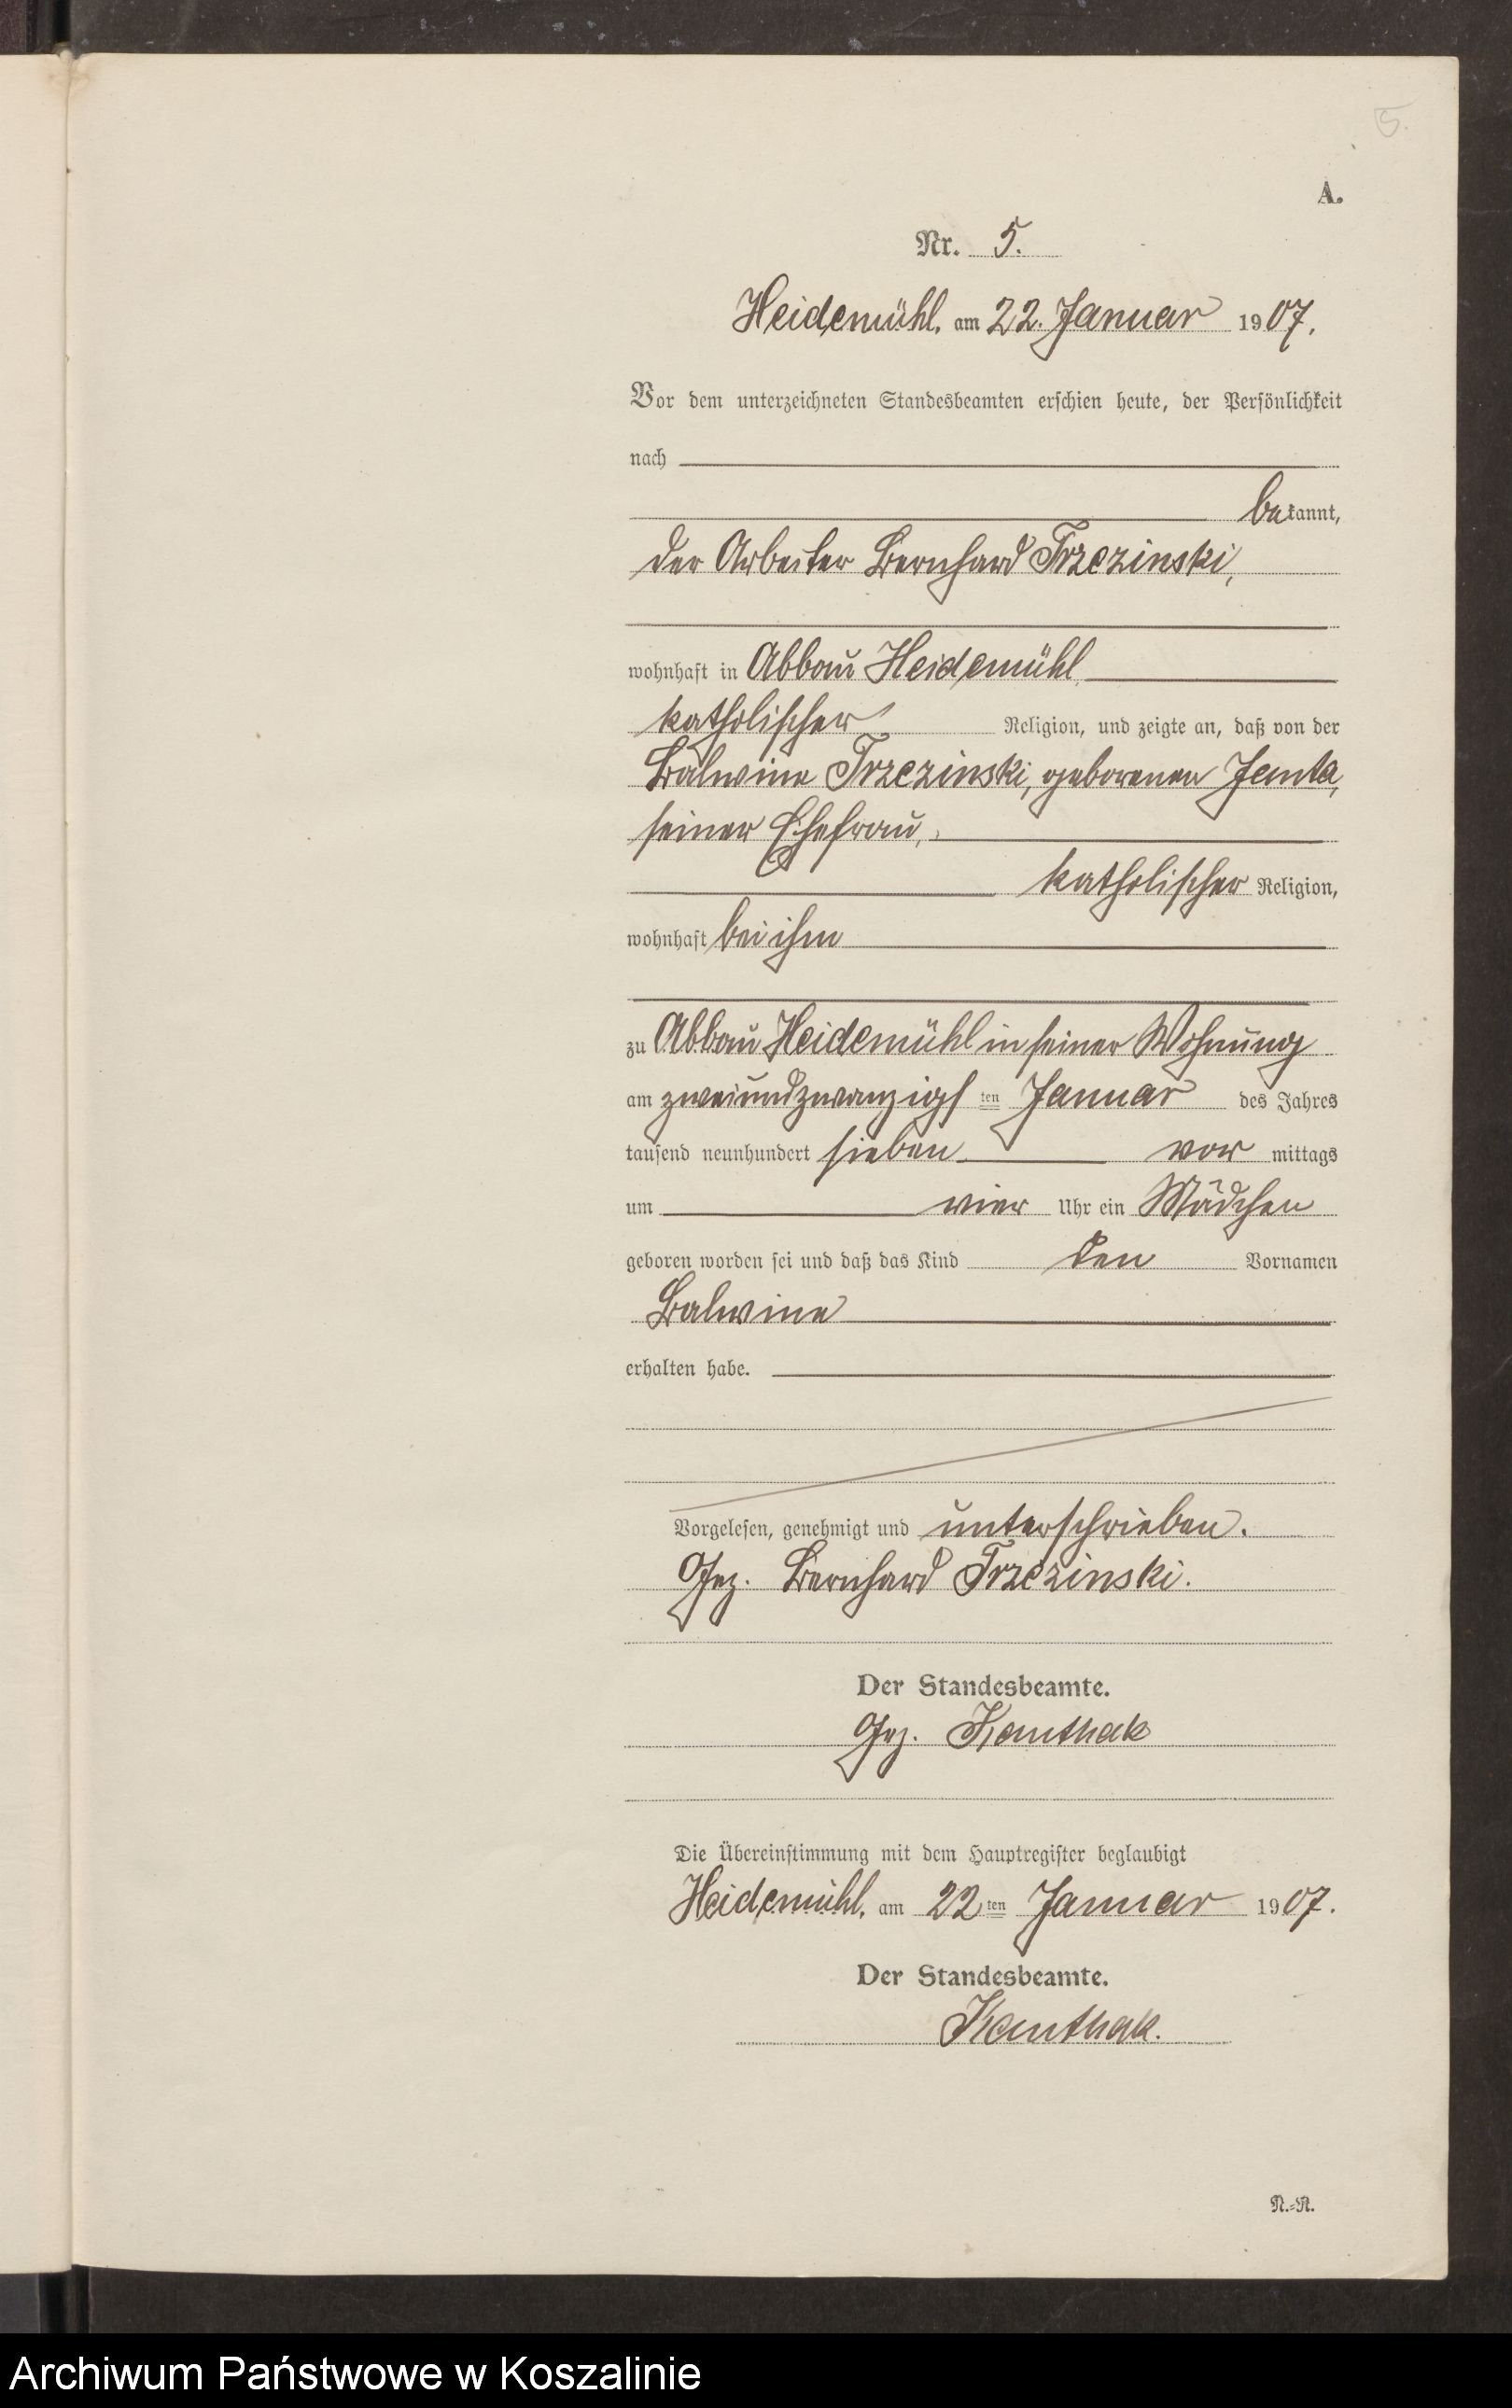 5.
A.
Nr. 5.
Heidemühl, am 22. Januar 1907.
Vor dem unterzeichneten Standesbeamten erschien heute, der Persönlichkeit
nach
bekannt,
der Arbeiter Bernhard Trzezinski,
wohnhaft in Abbau Heidemühl
katholischer Religion, und zeigte an, daß von der
Balwine Trzezinski, geborenen Jemta,
seiner Ehefrau,
katholischer Religion,
wohnhaft bei ihm
zu Abbau Heidemühl in seiner Wohnung
am zweiundzwanzigsten Januar des Jahres
tausend neunhundert sieben vormittags
um vier Uhr ein Mädchen
geboren worden sei und daß das Kind den Vornamen
Balwine
erhalten habe.
Vorgelesen, genehmigt und unterschrieben.
Gez. Bernhard Trzezinski.
Der Standesbeamte.
Gez. Kanthak
Die Übereinstimmung mit dem Hauptregister beglaubigt
Heidemühl, am 22ten Januar 1907.
Der Standesbeamte.
Kanthak.
N.=R.
Archiwum Państwowe w Koszalinie